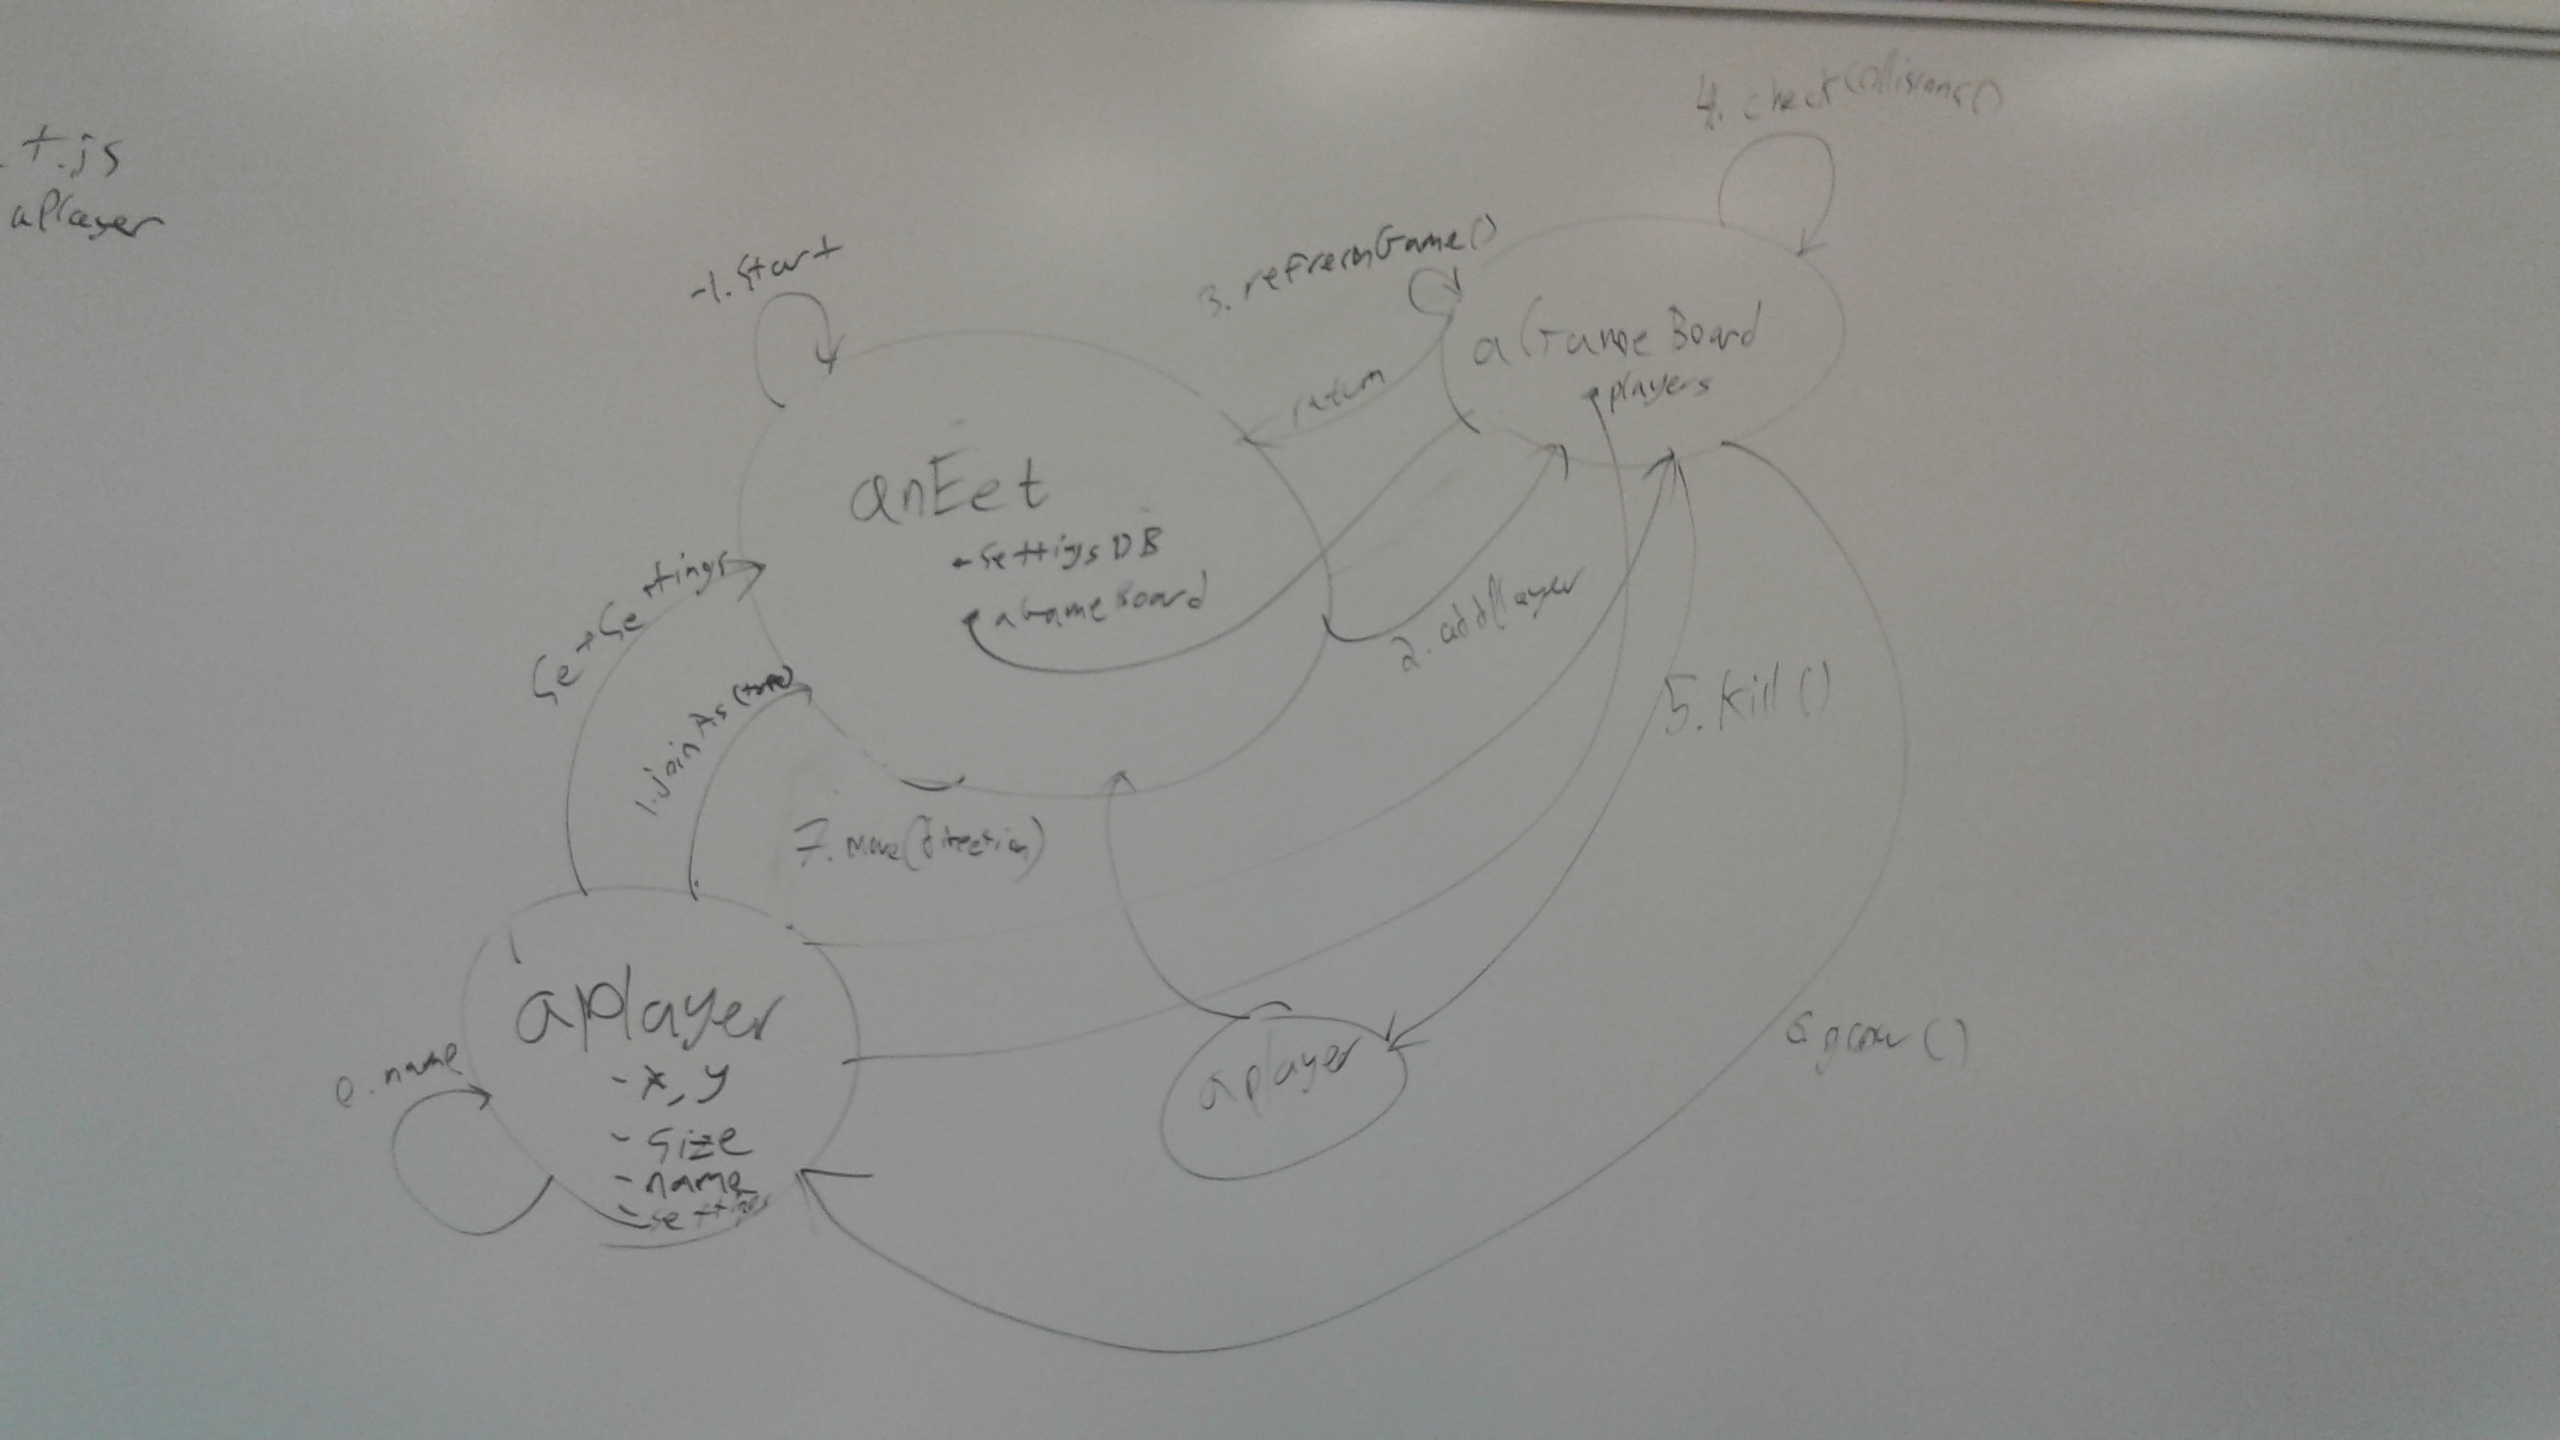 t.js
aPlayer
4. checkCollisions()
-1. Start
3. refreshGame()
return
aGameBoard
players
anEet
- SettingsDB
aGameBoard
GetSettings
2. addPlayer
1. joinAs(type)
5. kill()
7. move(direction)
aplayer
- x, y
- size
- name
- settings
0. name
aplayer
6. grow()